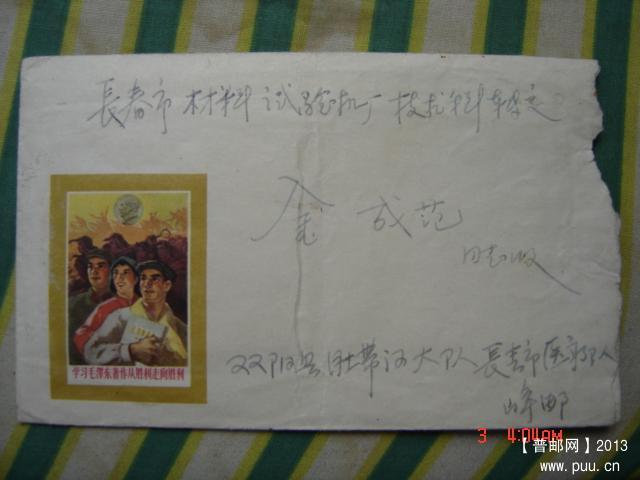 長春市材料试验机厂技术科转交
金成范
同志收
学习毛泽东著作从胜利走向胜利
双阳县 大队長春市医疗队
邮
3 4:04AM
【普邮网】2013
www.puu.cn